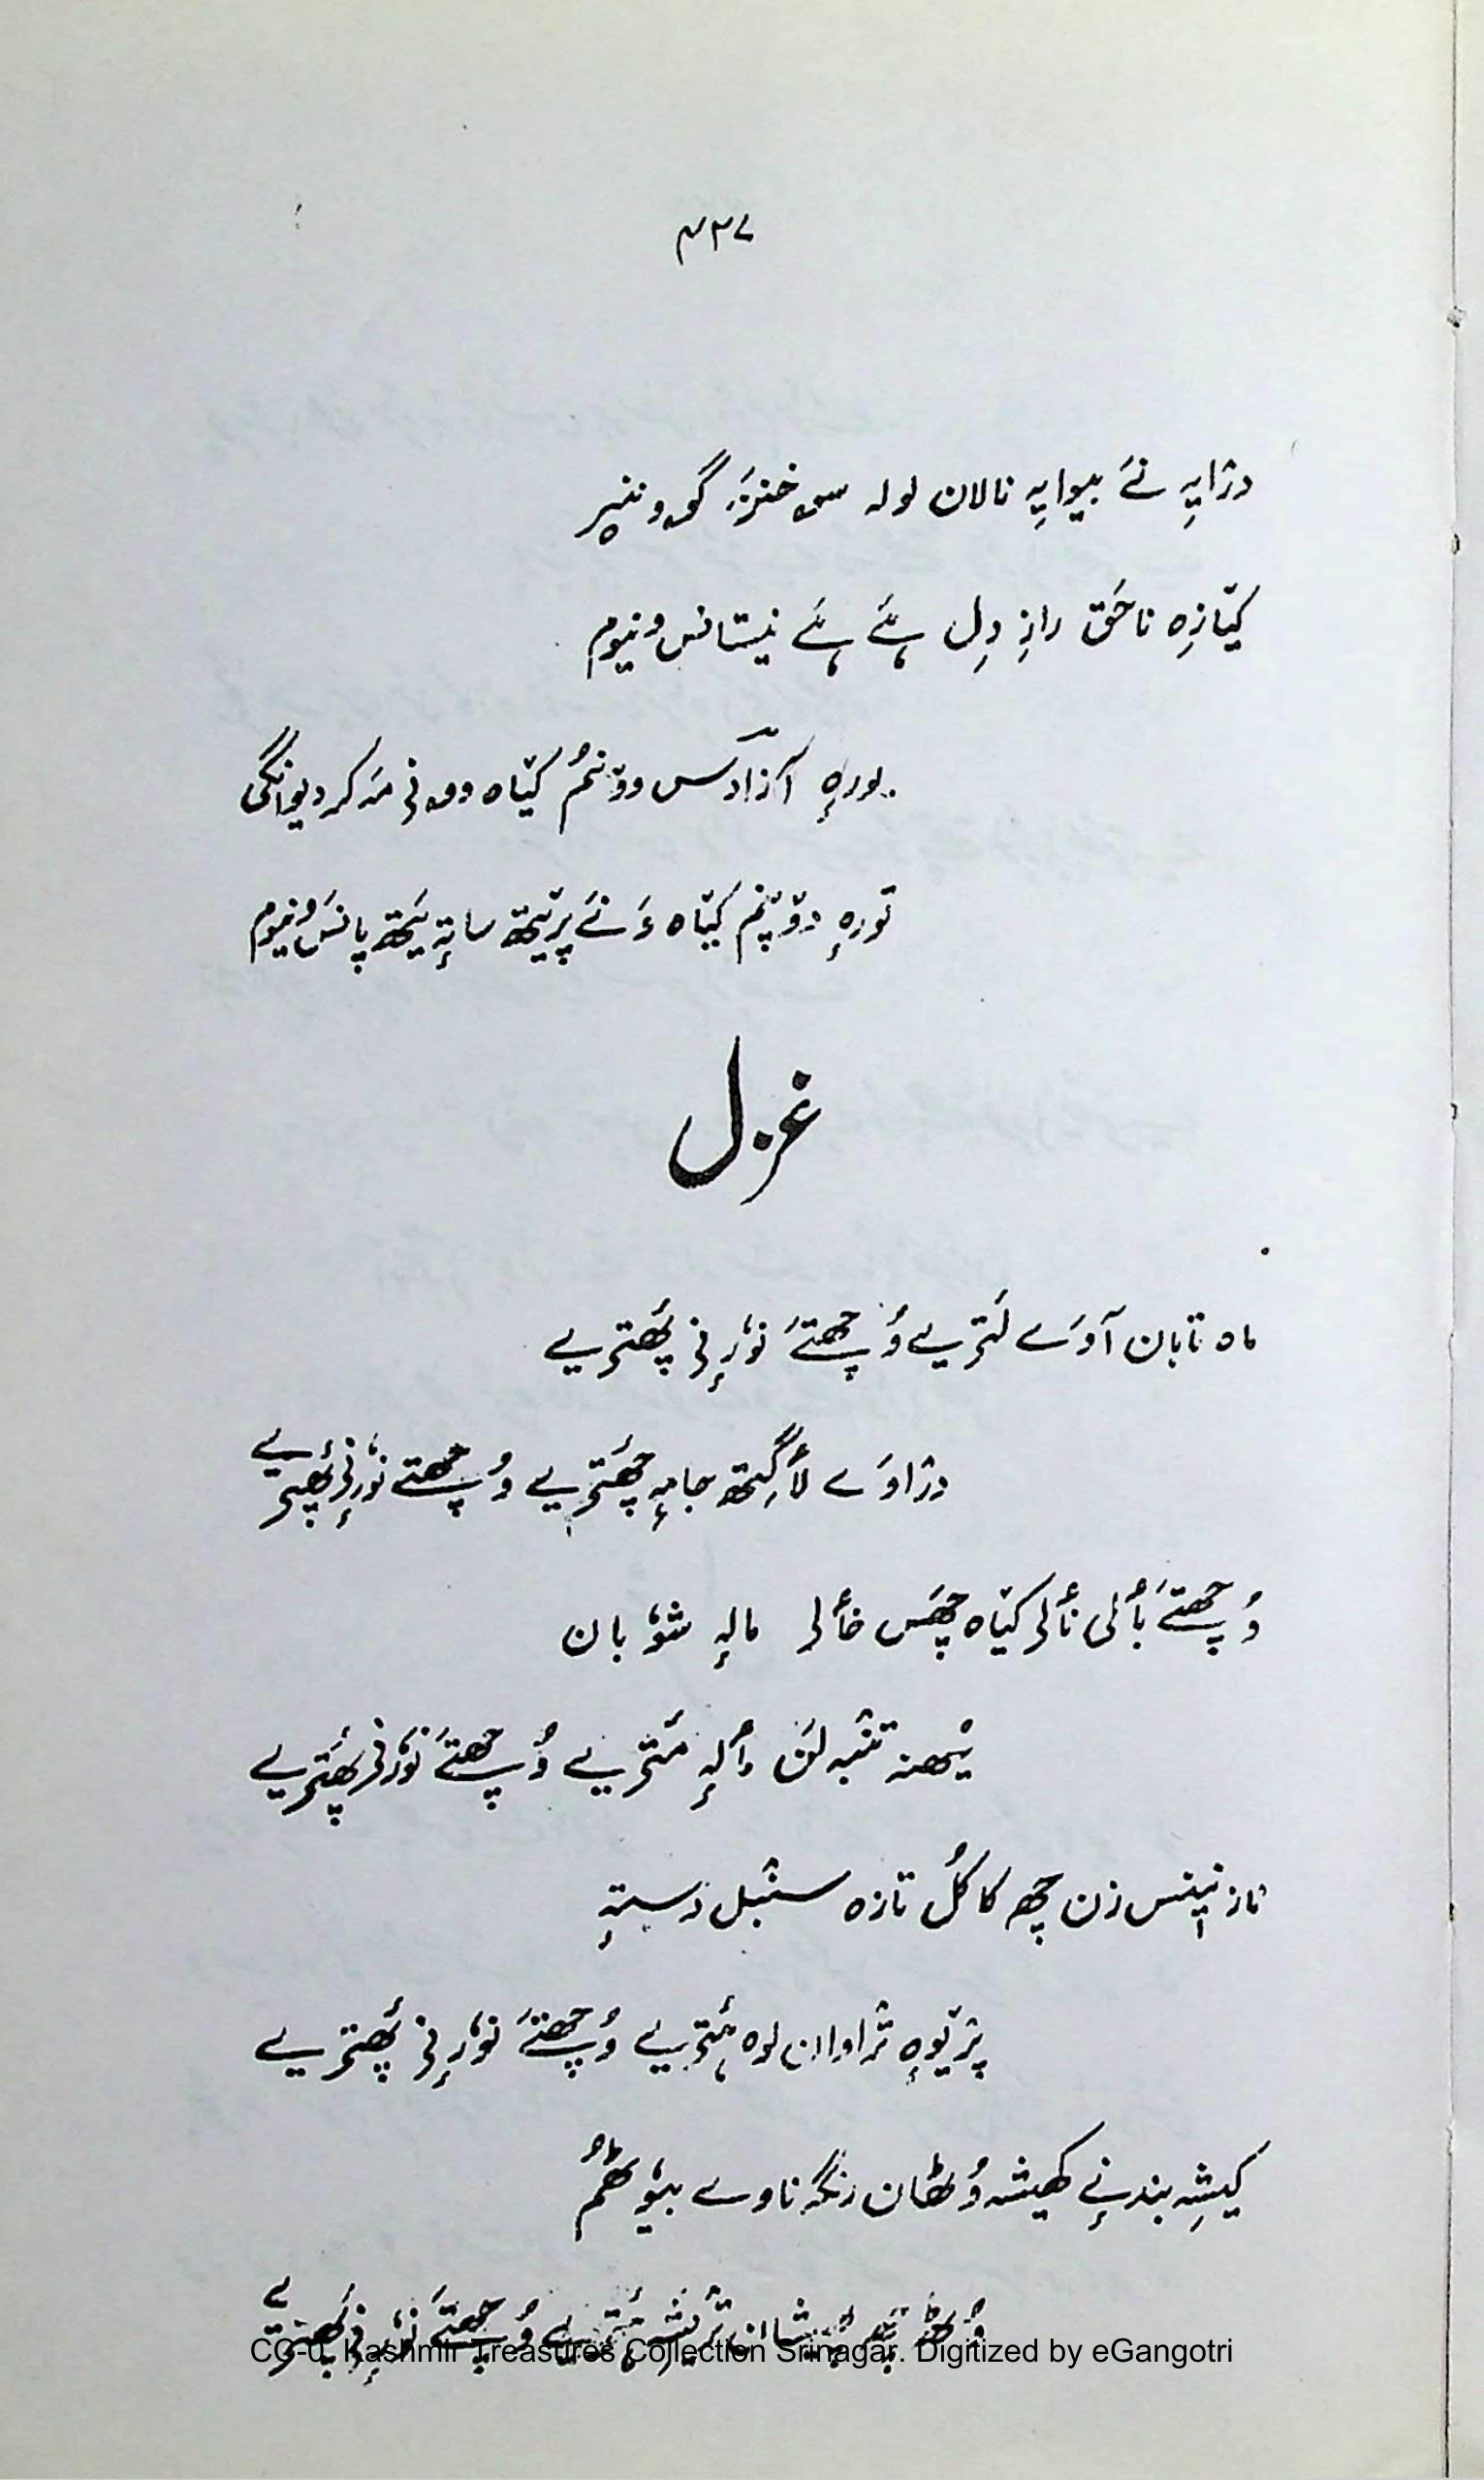 ۴۲۷
درٛایہِ نَے بیوایہِ نالان لولہ سۭ خنزَہ گۄو ننیر
کیّازِہ ناحَق رازِ دِل ہَے ہَے نیستانس ونیوم
یورہِ آزادَس ووٚننمُ کیّاہ دۄنی مَہ کر دیوانگی
تورہِ دوٚپنم کیّاہ وَنَے پرٛیتھ ساتہِ یَتھ پانَس ونیوم
غزل
ماہ تابان آوَے لَترِیے وُچھتَے نوٗرِنی پَھترِیے
درٛاوَے لٲگِتھ جامہِ چھَترِیے وُچھتے نوٗرِنی پَھترِیے
وُچھتَے بٲلی نٲلی کیّاہ چھَس خٲلی مالہِ شوٗبان
یِتھنہ تنبہ لَن وٲلہِ مَترِیے وُچھتَے نوٗرنی پَھترِیے
نازنیٖنس زن چھِ کاکُل تازہ سنبل دستہِ
پرٛیوہِ ترٛاوان لوہ ہَترِیے وُچھتَے نوٗرِنی پَھترِیے
کیشہِ بندنےِ کھیشہ وُٹھان رنگہ ناوے بیوٗٹھُم
وُچھتَے نوٗرِنی پَھترِیے
CC-0. Kashmir Treasures Collection Srinagar. Digitized by eGangotri